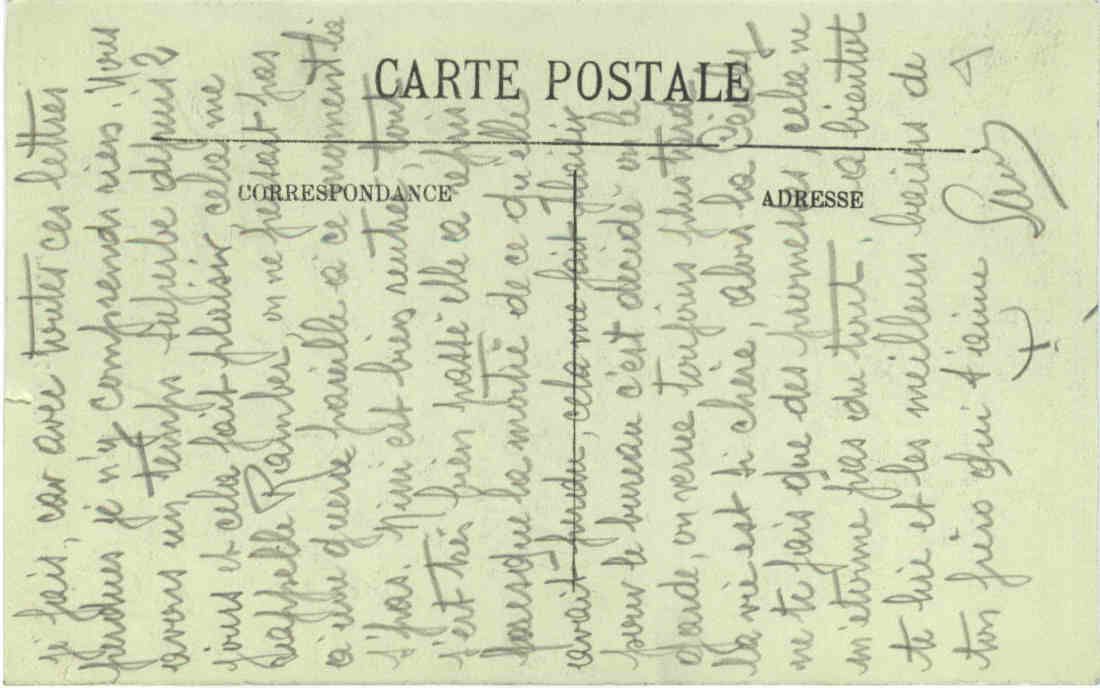 CARTE POSTALE
CORRESPONDANCE
ADRESSE
je fais, car avec toutes ces lettres
perdues je n'y comprends rien. Nous
avons un temps superbe depuis 2
jours et cela fait plaisir, cela me
rappelle on ne pensait pas
à une guerre pareille à ce moment là
Nini est bien rentrée, tout
s'est très bien passé elle a
presque la moitié de ce qu'elle
avait perdu, cela me fait plaisir
pour le bureau c'est décidé on le
garde, on verra toujours plus tard
la vie est si chère, alors ta
ne te fais que des promesses, cela ne
m'étonne pas du tout. à bientôt
te lire et les meilleurs baisers de
ton frère qui t'aime